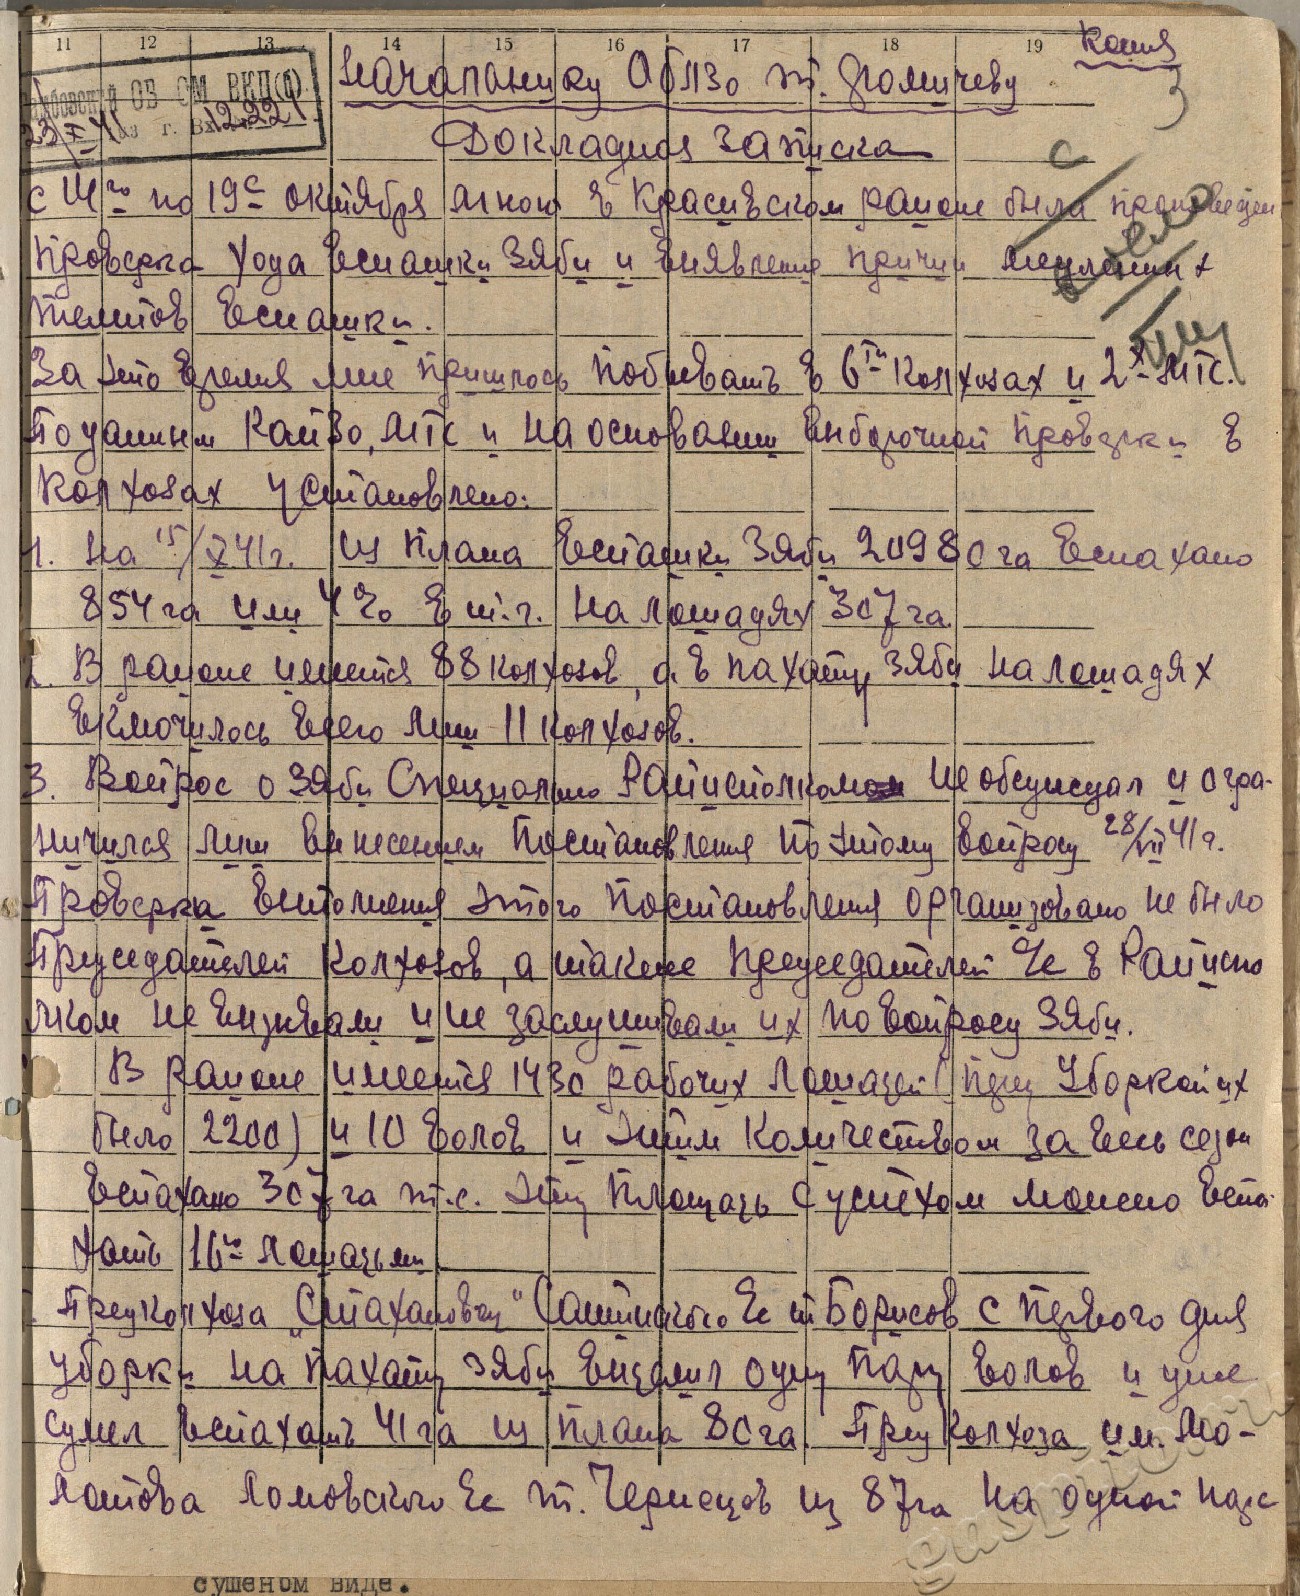 11 12 13 14 15 16 17 18 19
Копия
3
Тамбовский ОБ КОМ ВКП(б)
23/X 41 г. Вх. 12221
Начальнику ОблЗо т.
Докладная записка
С 14го по 19е октября мною в Красивском районе была произведен
проверка хода вспашки зяби и выявление причин медленных
темпов вспашки.
За это время мне пришлось побывать в 6ти колхозах и 2х МТС.
По данным РайЗо, МТС и на основании выборочной проверки в
колхозах установлено:
1. На 15/X 41 г. из плана вспашки зяби 20980 га вспахано
854 га или 4% в т.ч. на лошадях 307 га.
2. В районе имеется 88 колхозов, а в пахату зяби на лошадях
включилось всего лиш 11 колхозов.
3. Вопрос о зяби специально Райисполком не обсуждал и огра-
ничился лиш вынесением постановления по этому вопросу 28/VII 41 г.
Проверка выполнения этого постановления организовано не было
Председателей колхозов, а также председателей с/с в Райиспо
лком не вызывали и не заслушивали их по вопросу зяби.
В районе имеется 1430 рабочих лошадей (перед уборкой их
было 2200) и 10 волов и этим количеством за весь сезон
вспахано 307 га т.е. эту площадь с успехом можно вспа
хать 16ю лошадьми.
Пред колхоза "Стахановец" с/с т Борисов с первого дня
уборки на пахату зяби выделил одну пару волов и уже
сумел вспахать 41 га из плана 80 га. Пред колхоза им. Мо-
лотова Ломовского с/с т. Чернецов из 87 га на одной паре
gaspito.ru
сушеном виде.